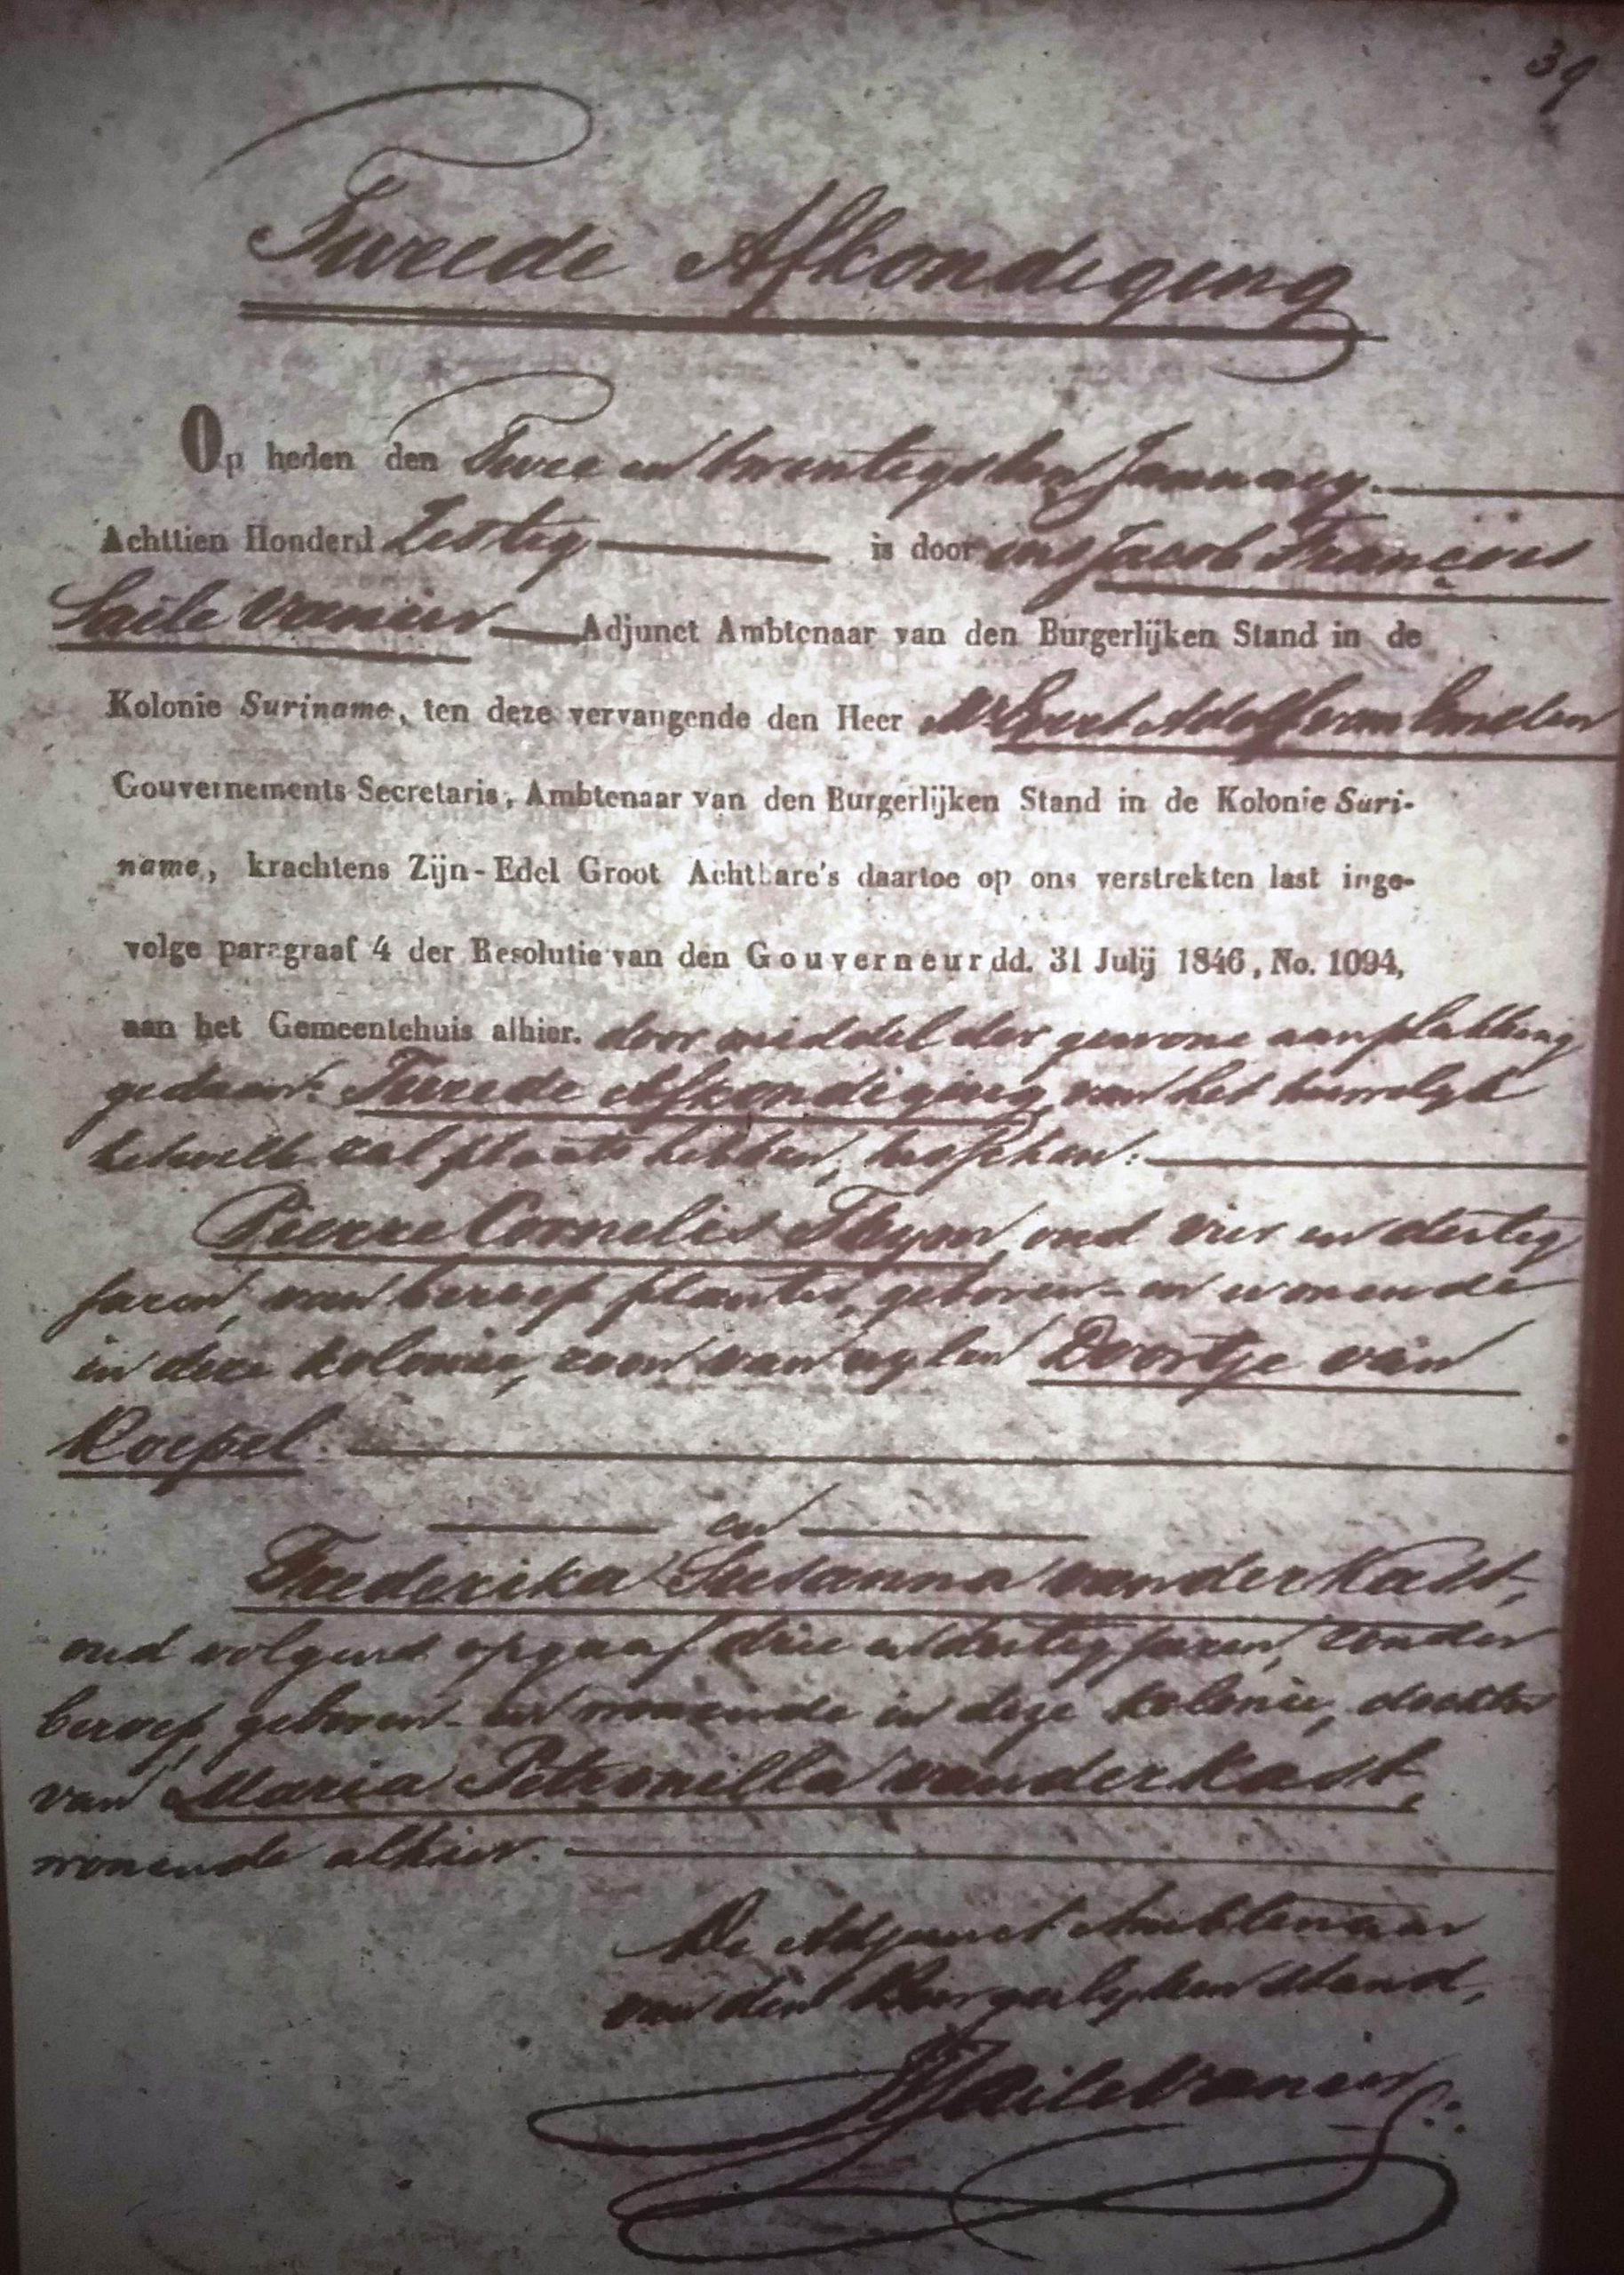 39
Tweede Afkondiging
Op heden den Twee en twintigsten January
Achttien Honderd Zestig is door ons Jacob François
Saile Vanier Adjunct Ambtenaar van den Burgerlijken Stand in de
Kolonie Suriname, ten deze vervangende den Heer Mr Evert Adolf van Emelen
Gouvernements Secretaris, Ambtenaar van den Burgerlijken Stand in de Kolonie Suri-
name, krachtens Zijn-Edel Groot Achtbare's daartoe op ons verstrekten last inge-
volge paragraaf 4 der Resolutie van den Gouverneur dd. 31 Julij 1846, No. 1094,
aan het Gemeentehuis alhier. door middel der gewone aanplakking
gedaan: Tweede Afkondiging van het huwelyk
hetwelk zal plaats hebben, tusschen:
Pierre Cornelis Thym, oud vier en dertig
jaren, van beroep planter, geboren- en wonende
in deze kolonie, zoon van wylen Doortje van
Koepel
en
Frederika Susanna van der Kast,
oud volgens opgaaf drie en dertig jaren, zonder
beroep, geboren- en wonende in deze kolonie, dochter
van Maria Petronella van der Kast,
wonende alhier.
De Adjunct Ambtenaar
van den Burgerlyken Stand,
JFSaile Vanier